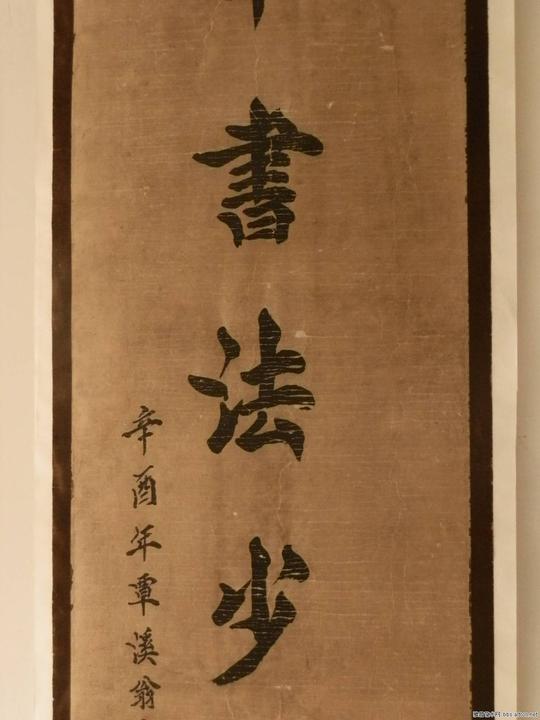 書法少
辛酉年覃溪翁